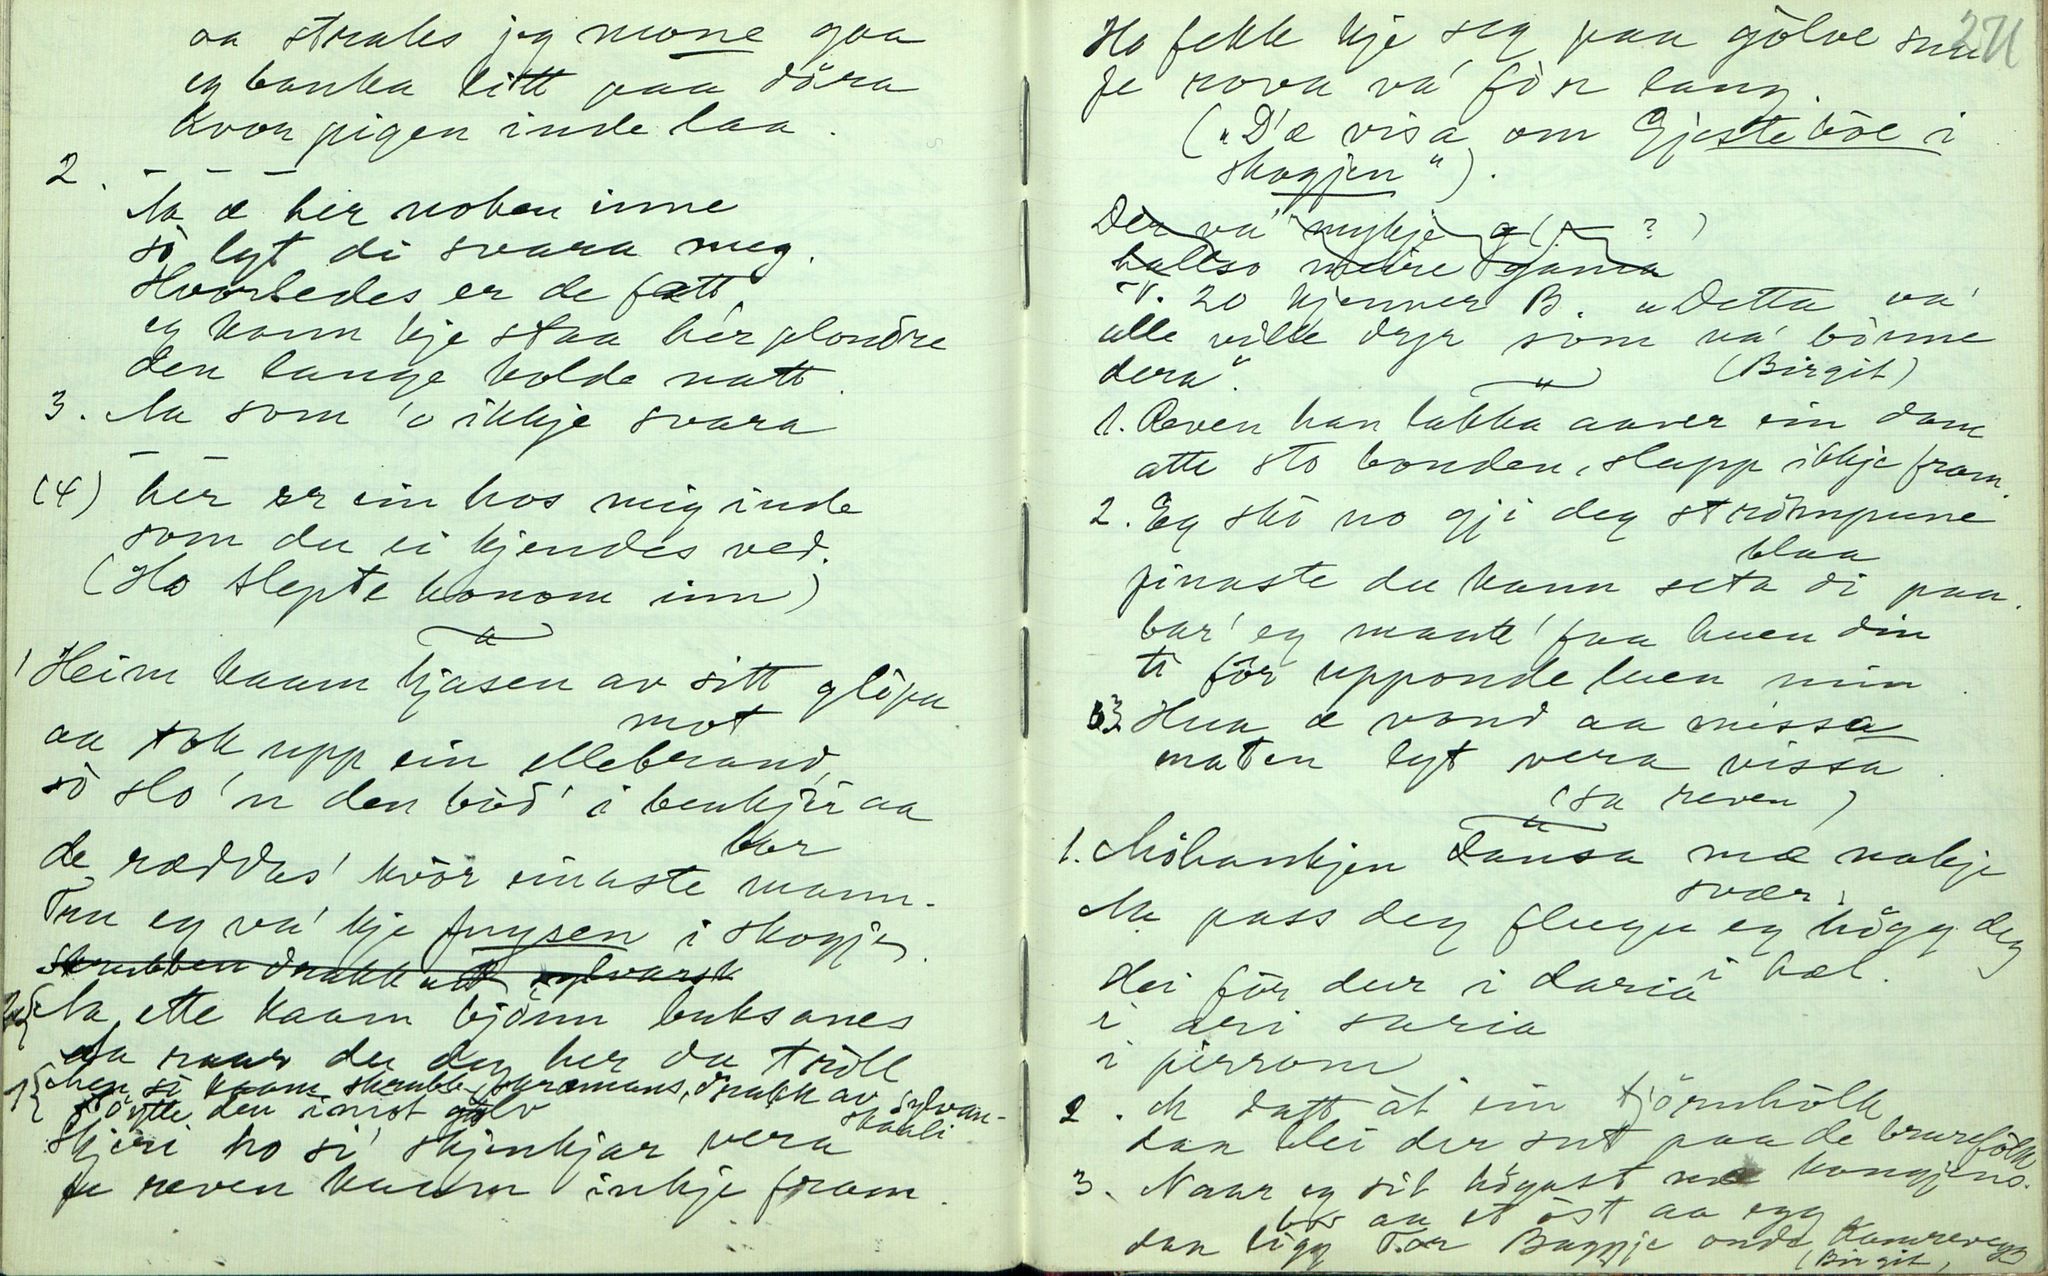 aa straks jeg mone gaa
eg banka litt paa döra
kvor pigen inde laa.
2. — — —
Aa æ her noken inne
so lyt di svara meg.
Hvorledes er de fatt
eg kann kje staa her plondre
den lange kolde natt.
3. Aa som 'o ikkje svara
— —
(4) her er ein hos mig inde
som du ei kjendes ved.
(Ho slepte konom inn)
"
1 Heim kaam kjasen av sitt glöpa
mot
aa tok upp ein ellebrand,
so slo 'n den bod' i benkjir aa
kor
de ræddas' kvör einaste mann.
Tru eg va' kje frysen i skogje
skrubben drakk utt sylvarsk
2 Aa ette kaam bjönn buksanes
aa snar du deg her du tröll
1 Men so kaam skrubb skræmans, drakk av sylvan-
skaali
stöytte den imot golv
Skjeri ho si' skjenkjar vera
fe reven kaam inkje fram.
271
Ho fekk kje seg paa gölve snu
fe rova va' för lang.
("D'æ visa om Gjestebøe i
skogjen").
Der va' mykje g( — ?)
haltso meire gama
v. 20 kjenner B. "Detta va'
alle ville dyr som va' bönne
dera".
(Birgit)
"
1. Reven han labba aaver ein dam
atte sto bonden, slapp ikkje fram.
2. Eg sko no gji deg strömpune
blaa
finaste du kann seta di paa.
bar' eg maatt' faa huen din
ti för upponde luen min.
3. Hua æ vond aa missa
maten lyt vera vissa.
(sa reven)
"
1. Möhankjen dansa mæ nokje
svær
Aa pass deg flugu eg högg deg
i hæl.
Hei för dur i daria
i ari saria
i pirrom
2. A datt åt ein tjörnhölk
dan blei der sut paa de brurefölk
3. Naar eg sit högast mæ kongjens
bor aa et ost aa egg
dan ligg Tor Baggje onde Kamrevegg
(Birgit)